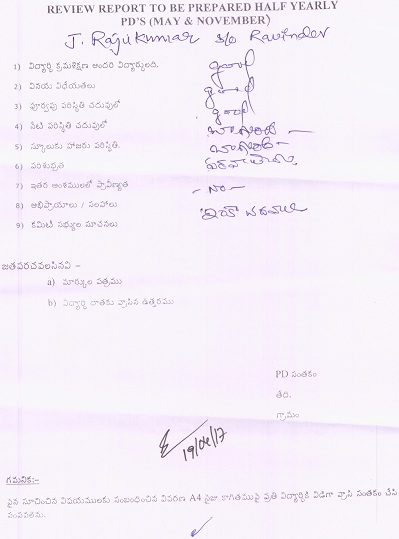 REVIEW REPORT TO BE PREPARED HALF YEARLY
PD'S (MAY & NOVEMBER)
J. Rajukumar s/o Ravinder
1) విద్యార్థి క్రమశిక్షణ అందరి విద్యార్థులది. good
2) వినయ విధేయతలు good
3) పూర్వపు పరిస్థితి చదువులో good
4) నేటి పరిస్థితి చదువులో బాగుంది —
5) స్కూలుకు హాజరు పరిస్థితి. బాగుంది -
6) పరిశుభ్రత పరవాలేదు
7) ఇతర అంశములలో ప్రావీణ్యత - No -
8) అభిప్రాయాలు / సలహాలు ఇంకా చదవాలి
9) కమిటి సభ్యుల సూచనలు
జతపరచవలసినవి –
a) మార్కుల పత్రము
b) విద్యార్థి దాతకు వ్రాసిన ఉత్తరము
PD సంతకం
తేది.
గ్రామం
19/04/17
గమనిక:-
పైన సూచించిన విషయములకు సంబంధించిన వివరణ A4 సైజు కాగితముపై ప్రతి విద్యార్థికి విడిగా వ్రాసి సంతకం చేసి
పంపవలెను.